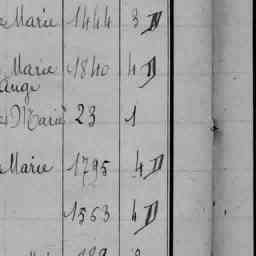 Marie 1444 3 D
Marie 1840 4 D
Ange
Marie 23 1
Marie 1795 4 D
1563 4 D